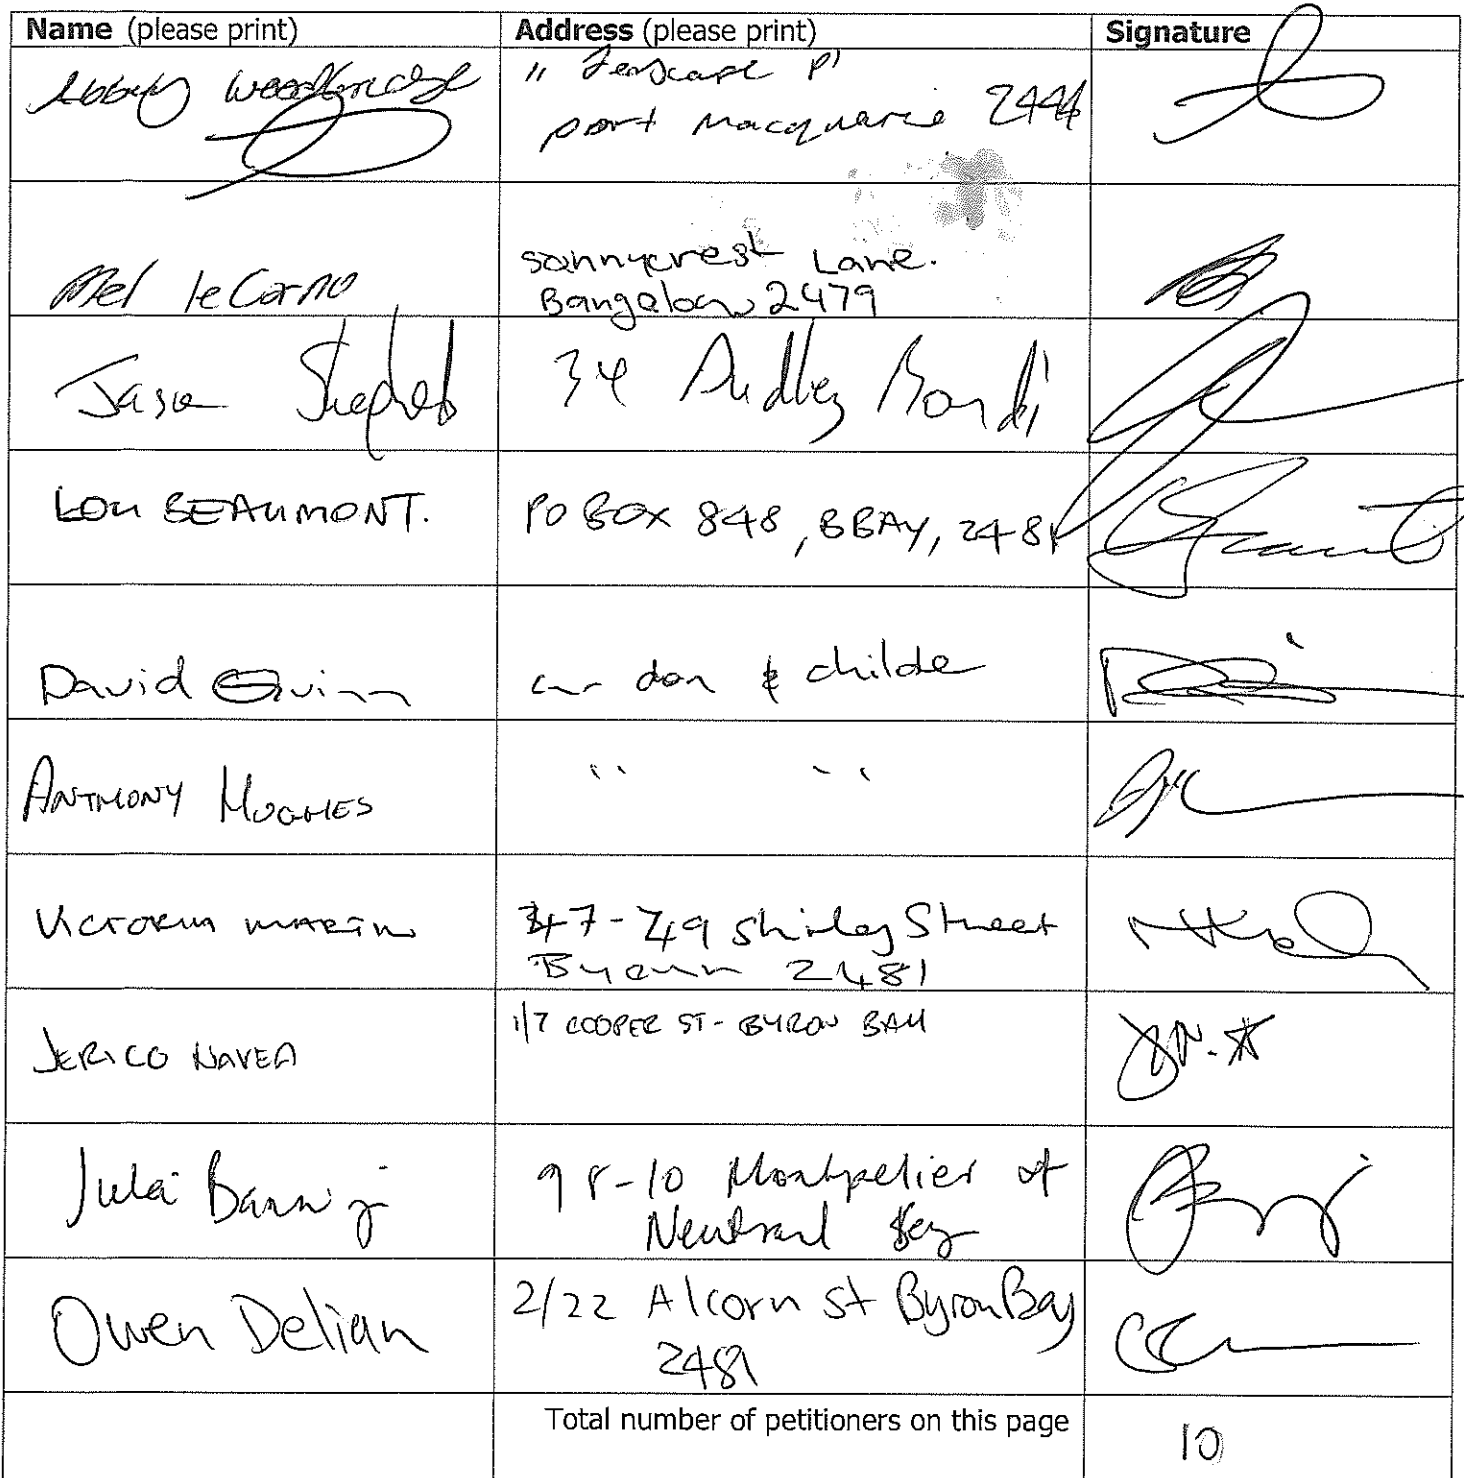 Name (please print) Address (please print) Signature
Abby Woodbridge
11 Seascape Pl
port macquarie 2444
Mel leCorno
sannycrest Lane.
Bangalow 2479
Jason 34 Dudley Bondi
LOU BEAUMONT. PO BOX 848, BBAY, 2481
David Quinn cnr don & childe
ANTHONY HUGHES " "
VICTORIA MARTIN
47-49 Shirley Street
Byron 2481
JERICO NAVEA 1/7 COOPER ST - BYRON BAY JN.
98-10 Montpelier st
Neutral Bay
Owen Delian
2/22 Alcorn St Byron Bay
2481
Total number of petitioners on this page 10